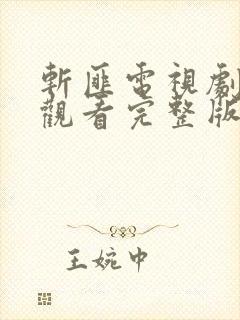 斬匪電視劇
觀看完整版
王婉中